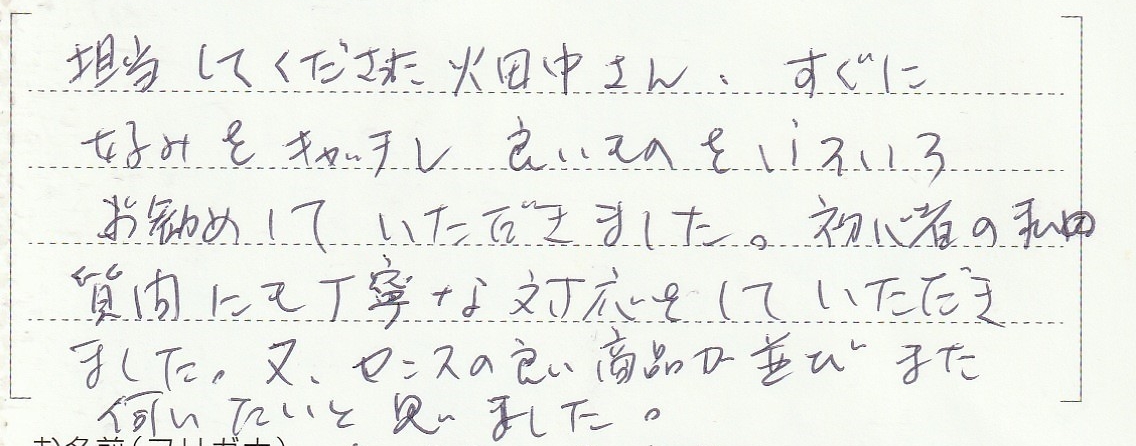 担当してくださた畑中さん、すぐに
好みをキャッチし 良いものをいろいろ
お勧めして いただきました。初心者の私の
質問にも丁寧な対応をして いただき
ました。又、センスの良い商品が並び また
伺いたいと思いました。
お名前(フリガナ)